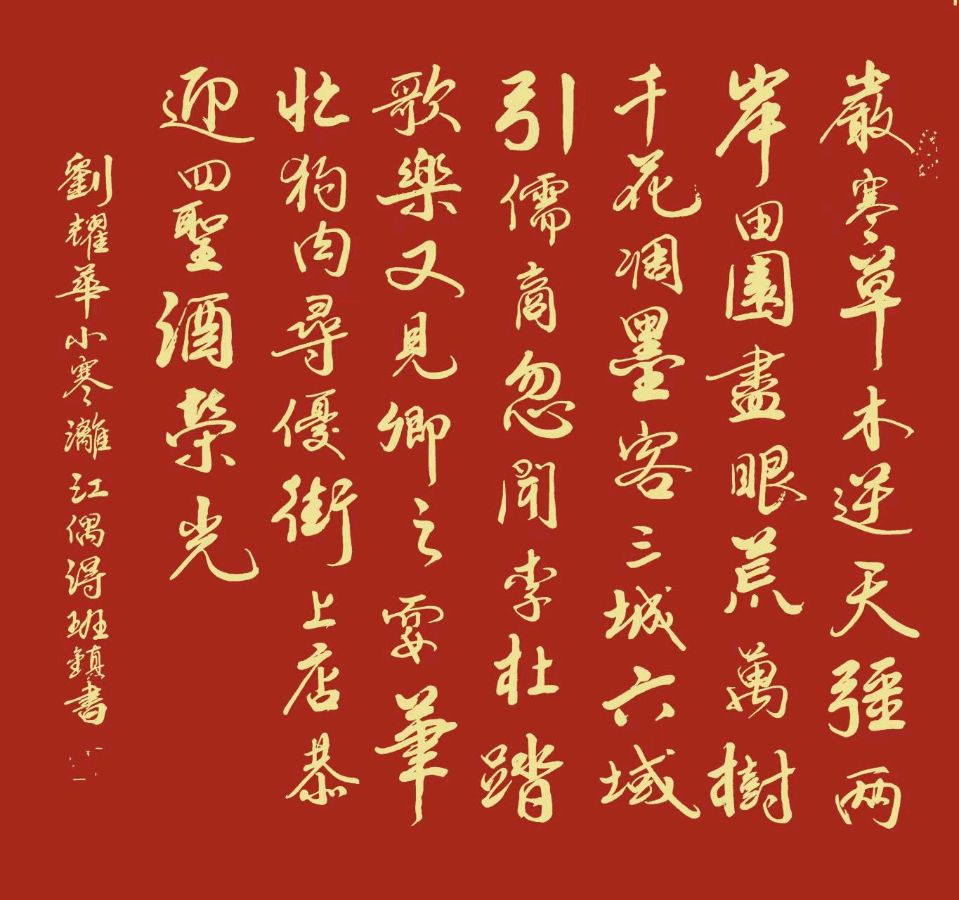 嚴寒草木逆天彊两
岸田園盡眼荒萬樹
千花凋墨客三城六域
引儒商忽聞李杜踏
歌樂又見卿之耍筆
壮狗肉尋優街上店恭
迎四聖酒榮光
劉耀華小寒灕江偶得班鎮書